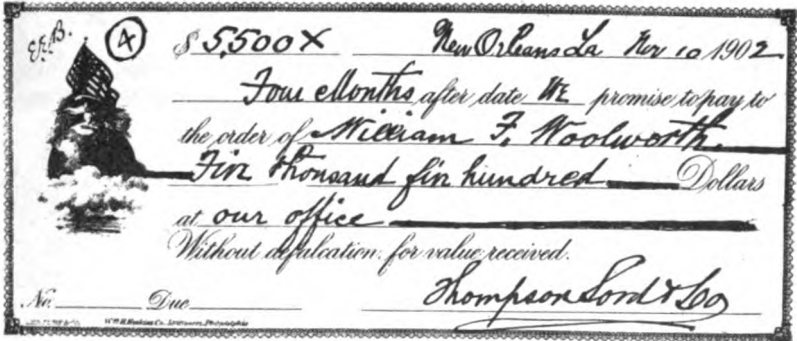 E.R.B. 4 $ 5,500 X New Orleans La Nov 10 1902
Four Months after date WE promise to pay to
the order of William F. Woolworth.
Five thousand five hundred Dollars
at our office
Without defalcation, for value received.
Thompson Lord & Co
No. Due
Wm H. Hoskins Co. Stationers, Philadelphia